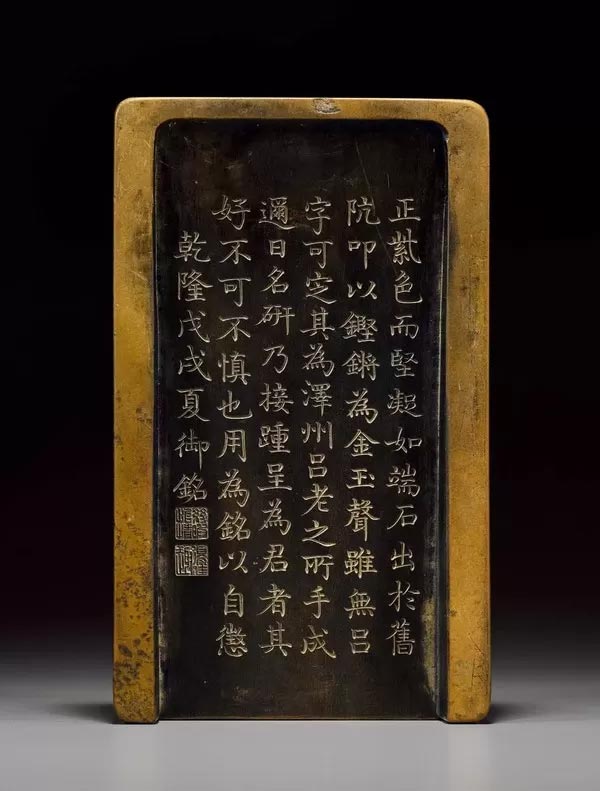 正紫色而堅凝如端石出於舊
阬叩以鏗鏘為金玉聲雖無呂
字可定其為澤州呂老之所手成
邇日名硏乃接踵呈為君者其
好不可不慎也用為銘以自懲
乾隆戊戌夏御銘